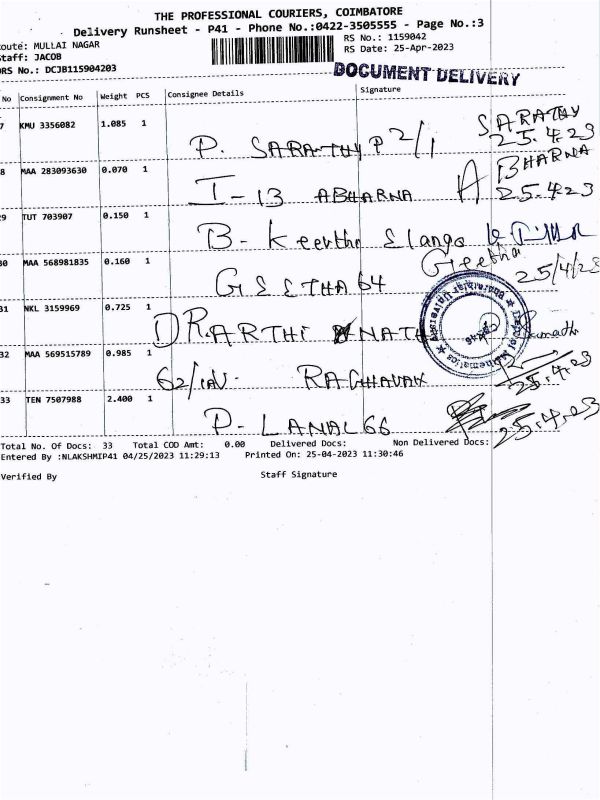 THE PROFESSIONAL COURIERS, COIMBATORE
Delivery Runsheet - P41 - Phone No.:0422-3505555 - Page No.:3
oute: MULLAI NAGAR
RS No.: 1159042
Staff: JACOB
RS Date: 25-Apr-2023
DRS No.: DCJB115904203
DOCUMENT DELIVERY
No Consignment No Weight PCS Consignee Details Signature
7 KMU 3356082 1.085 1 P. SARATHY P 2/1 SARATHY 25.4.23
8 MAA 283093630 0.070 1 I-13 ABHARNA A BHARNA 25.4.23
29 TUT 703907 0.150 1 B- Keerthi Elango
30 MAA 568981835 0.160 1 GEETHA 64 Geetha 25/4/23
31 NKL 3159969 0.725 1 DR. ARTHI NATH
32 MAA 569515789 0.985 1 62/ RAGHAVAN 25.4.23
33 TEN 7507988 2.400 1 P- 66 25.4.23
Total No. Of Docs: 33 Total COD Amt: 0.00 Delivered Docs: Non Delivered Docs:
Entered By :NLAKSHMIP41 04/25/2023 11:29:13 Printed On: 25-04-2023 11:30:46
Verified By Staff Signature